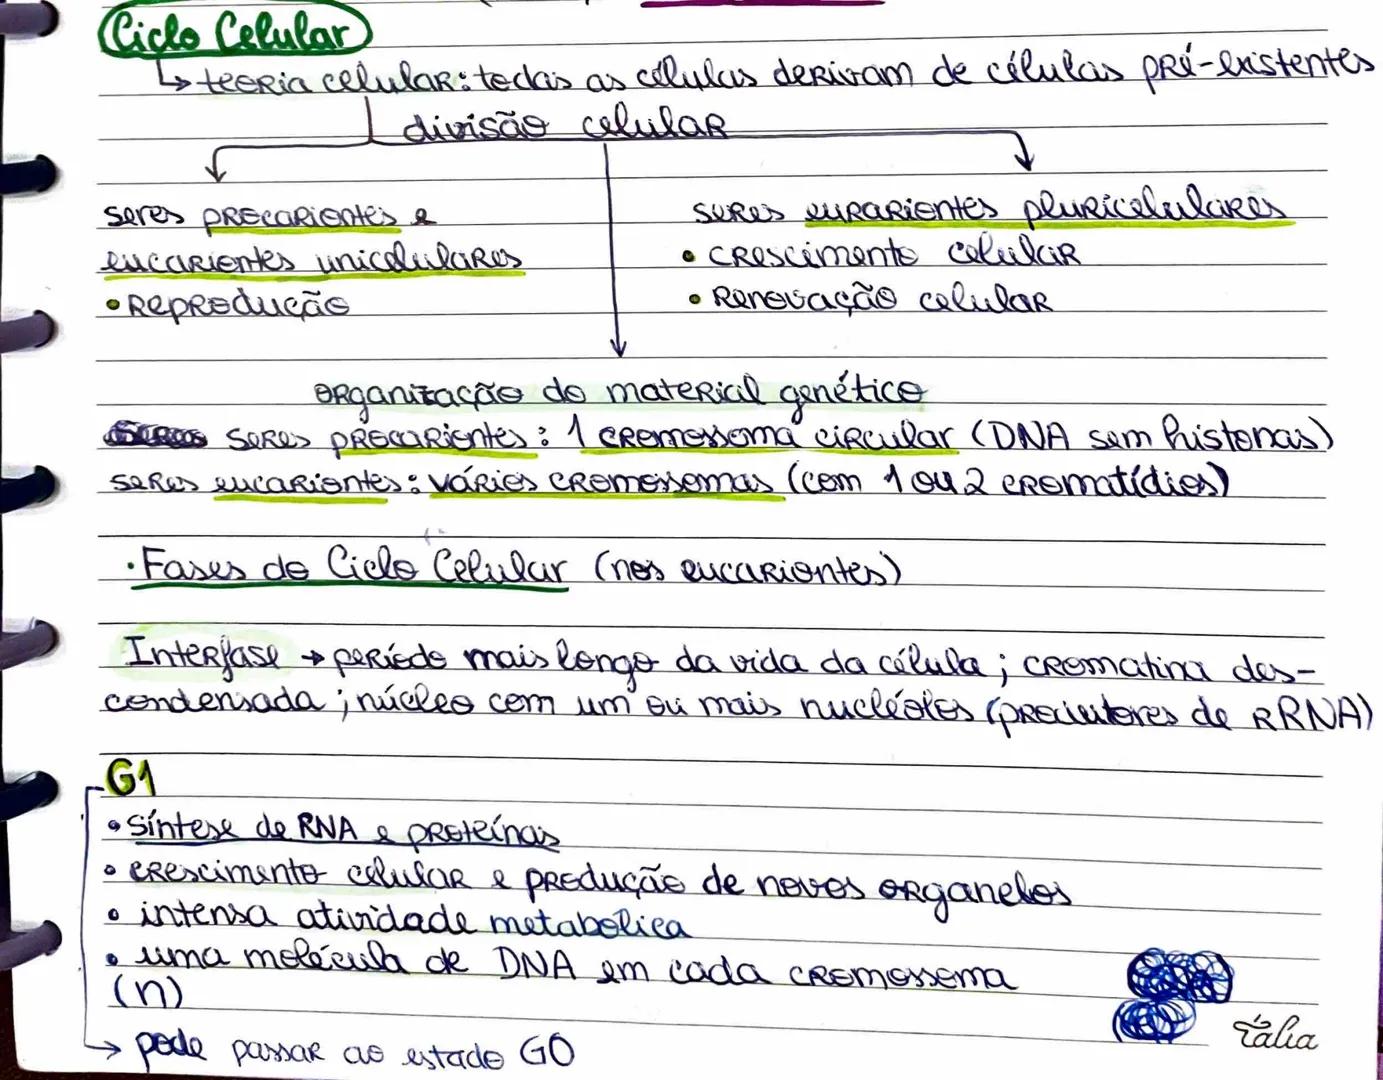 Ciclo Celular
↳ teoria celular: todas as células derivam de células pré-existentes
divisão celular
seres procariontes e
eucariontes unicelulares
• Reprodução
seres eurariontes pluricelulares
• crescimento celular
• Renovação celular
organização do material genético
seres procariontes: 1 cromossoma circular (DNA sem histonas)
seres eucariontes: vários cromossomas (com 1 ou 2 cromatídios)
• Fases do Ciclo Celular (nos eucariontes)
Interfase → período mais longo da vida da célula; cromatina des-
condensada; núcleo com um ou mais nucléolos (produtores de RRNA)
G1
• Síntese de RNA e proteínas
• crescimento celular e produção de novos organelos
• intensa atividade metabolica
• uma molécula de DNA em cada cromossoma
(n)
→ pode passar ao estado G0
Tália